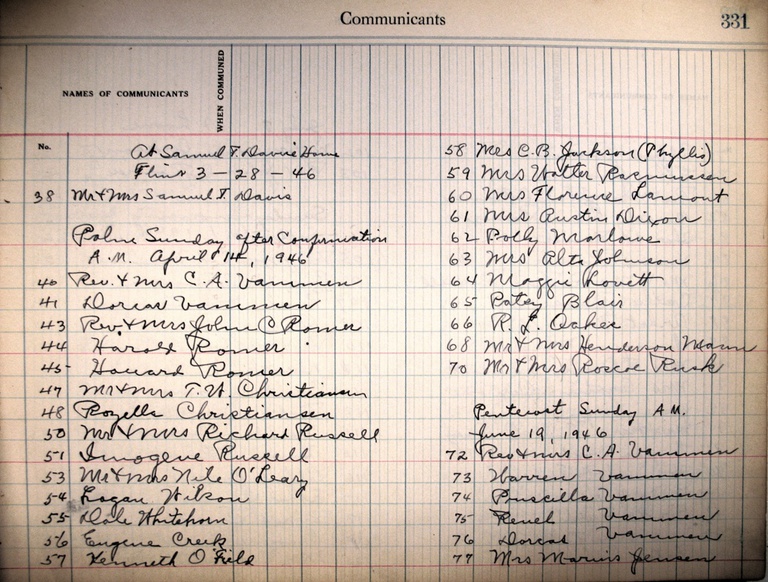 Communicants
331
NAMES OF COMMUNICANTS
WHEN COMMUNED
No.
At Samuel T. Davis' Home
Flint 3-28-46
38 Mr & Mrs Samuel T. Davis
Palm Sunday after Confirmation
A.M. April 14, 1946
40 Rev. & Mrs C. A. Vammen
41 Dorcas Vammen
43 Rev. & Mrs John C Romer
44 Harold Romer
45 Howard Romer
47 Mr & Mrs T. W. Christiansen
48 Rozella Christiansen
50 Mr & Mrs Richard Russell
51 Imogene Russell
53 Mr & Mrs Nile O'Leary
54 Logan Wilson
55 Dale Whitehorn
56 Eugene Creek
57 Kenneth O'Field
58 Mrs C. B. Jackson (Phyllis)
59 Mrs Walter Rasmussen
60 Mrs Florence Lamont
61 Mrs Austin Dixon
62 Polly Marlowe
63 Mrs Alta Johnson
64 Maggie Lovett
65 Patsy Blair
66 R. L. Oakes
68 Mr & Mrs Henderson Mann
70 Mr & Mrs Roscoe Rusk
Pentecost Sunday A.M.
June 19, 1946
72 Rev & Mrs C. A. Vammen
73 Warren Vammen
74 Priscilla Vammen
75 Vammen
76 Dorcas Vammen
77 Mrs Marius Jensen